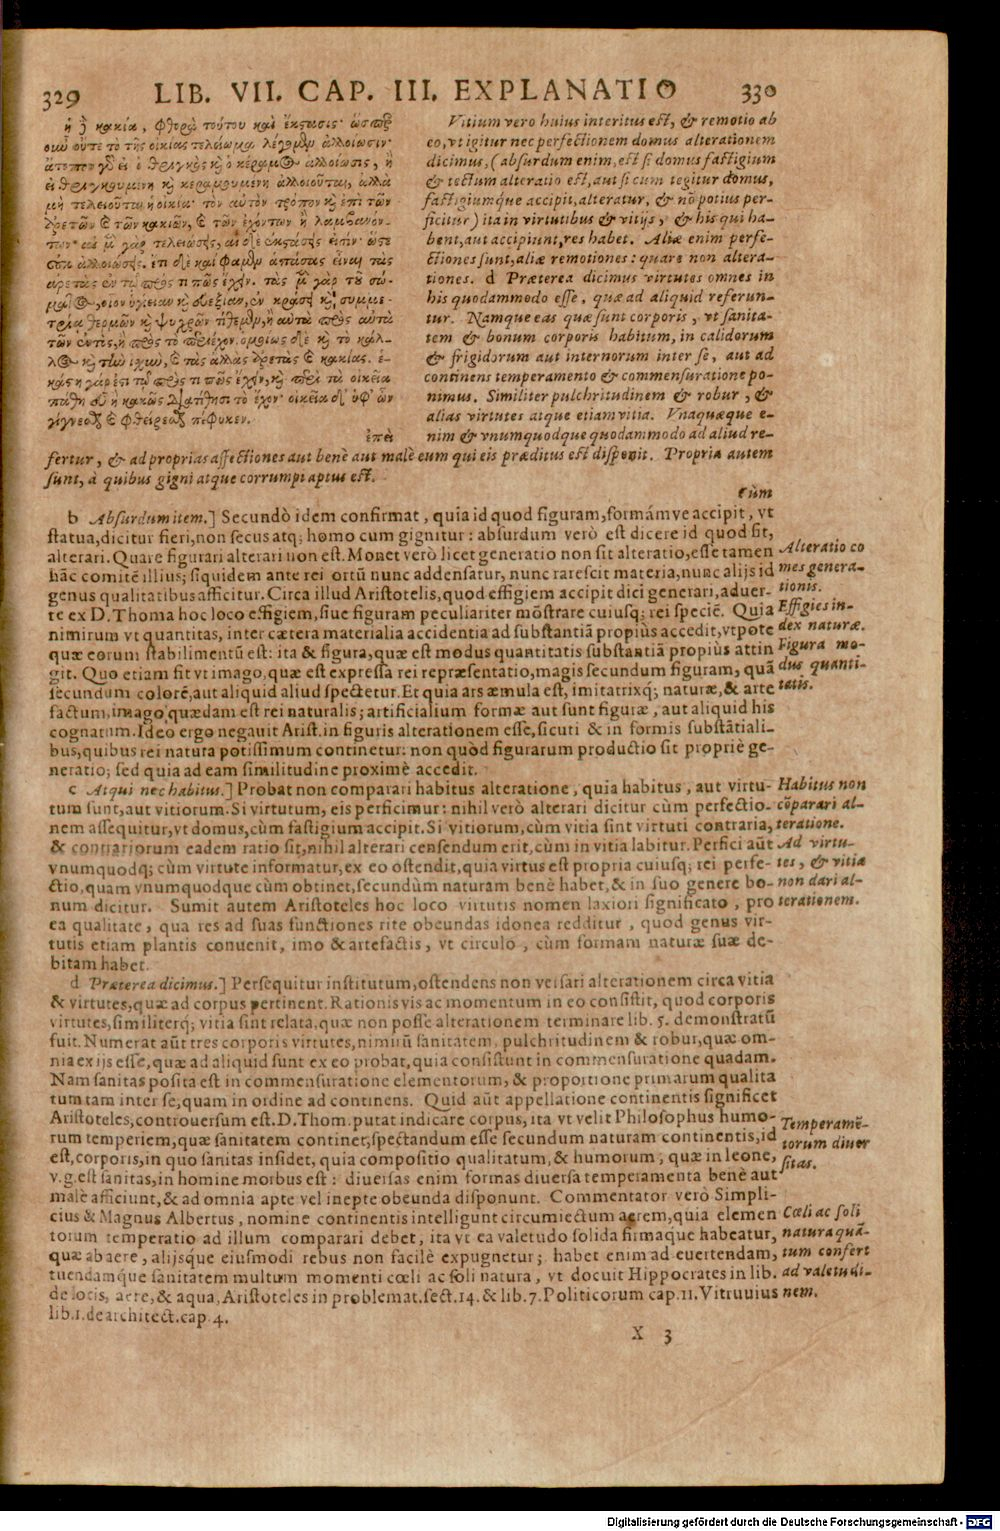 329 LIB. VII. CAP. III. EXPLANATIO 330
ἡ ἢ κακία, φθορὰ τούτου καὶ ἔκστασις· ὥσπερ
οὖν οὔτε τὸ τῆς οἰκίας τελείωμα λέγομεν ἀλλοίωσιν·
ἄτοπον γὸ εἰ ὁ θριγκὸς κὶ ὁ κέραμος ἀλλοίωσις, ἢ
εἰ θριγκουμένη κὶ κεραμουμένη ἀλλοιοῦται, ἀλλὰ
μὴ τελειοῦται ἡ οἰκία· τὸν αὐτὸν τρόπον κὶ ἐπὶ τῶν
ἀρετῶν καὶ τῶν κακιῶν, καὶ τῶν ἐχόντων ἢ λαμβανόν-
των· αἱ μὲν γὰρ τελειώσεις, αἱ δὲ ἐκστάσεις εἰσίν· ὥστε
οὐκ ἀλλοιώσεις. ἔτι δὲ καὶ φαμὲν ἁπάσας εἶναι τὰς
ἀρετὰς ἐν τῷ πρός τι πῶς ἔχειν. τὰς μὲν γὰρ τοῦ σώ-
ματος, οἷον ὑγίειαν κὶ εὐεξίαν, ἐν κράσει κὶ συμμε-
τρίᾳ θερμῶν κὶ ψυχρῶν τίθεμεν, ἢ αὐτὰ πρὸς αὑτὰ
τῶν ἐντὸς, ἢ πρὸς τὸ περιέχον. ὁμοίως δὲ κὶ τὸ κάλ-
λος κὶ τὴν ἰσχὺν, καὶ τὰς ἄλλας ἀρετὰς καὶ κακίας. ἑ-
κάστη γάρ ἐστι τῷ πρός τι πῶς ἔχειν, κὶ περὶ τὰ οἰκεῖα
πάθη εὖ ἢ κακῶς διατίθησι τὸ ἔχον· οἰκεῖα δὲ ὑφ᾽ ὧν
γίγνεσθαι καὶ φθείρεσθαι πέφυκεν.
ἐπεὶ
Vitium vero huius interitus est, & remotio ab
eo, vt igitur nec perfectionem domus alterationem
dicimus, (absurdum enim, est si domus fastigium
& tectum alteratio est, aut si cum tegitur domus,
fastigiumque accipit, alteratur, & nō potius per-
ficitur) ita in virtutibus & vitijs, & his qui ha-
bent, aut accipiunt, res habet. Aliæ enim perfe-
ctiones sunt, aliæ remotiones: quare non altera-
tiones. d Præterea dicimus virtutes omnes in
his quodammodo esse, quæ ad aliquid referun-
tur. Namque eas quæ sunt corporis, vt sanita-
tem & bonum corporis habitum, in calidorum
& frigidorum aut internorum inter se, aut ad
continens temperamento & commensuratione po-
nimus. Similiter pulchritudinem & robur, &
alias virtutes atque etiam vitia. Vnaquæque e-
nim & vnumquodque quodammodo ad aliud re-
fertur, & ad proprias affectiones aut benè aut malè eum qui eis præditus est disponit. Propria autem
sunt, à quibus gigni atque corrumpi aptus est.
cùm
b Absurdum item.] Secundò idem confirmat, quia id quod figuram, formámve accipit, vt
statua, dicitur fieri, non secus atq; homo cum gignitur: absurdum verò est dicere id quod sit,
alterari. Quare figurari alterari non est. Monet verò licet generatio non sit alteratio, esse tamen
hāc comitē illius; siquidem ante rei ortū nunc addensatur, nunc rarescit materia, nunc alijs id
genus qualitatibus afficitur. Circa illud Aristotelis, quod effigiem accipit dici generari, aduer-
te ex D. Thoma hoc loco effigiem, siue figuram peculiariter mōstrare cuiusq; rei speciē. Quia
nimirum vt quantitas, inter cætera materialia accidentia ad substantiā propiùs accedit, vtpote
quæ eorum stabilimentū est: ita & figura, quæ est modus quantitatis substantiā propiùs attin
git. Quo etiam fit vt imago, quæ est expressa rei repræsentatio, magis secundum figuram, quā
secundum colorē, aut aliquid aliud spectetur. Et quia ars æmula est, imitatrixq́; naturæ, & arte
factum, imago quædam est rei naturalis; artificialium formæ aut sunt figuræ, aut aliquid his
cognatum. Ideo ergo negauit Arist. in figuris alterationem esse, sicuti & in formis substātiali-
bus, quibus rei natura potissimum continetur: non quòd figurarum productio sit propriè ge-
neratio; sed quia ad eam similitudine proximè accedit.
c Atqui nec habitus.] Probat non comparari habitus alteratione, quia habitus, aut virtu-
tum sunt, aut vitiorum. Si virtutum, eis perficimur: nihil verò alterari dicitur cùm perfectio-
nem assequitur, vt domus, cùm fastigium accipit. Si vitiorum, cùm vitia sint virtuti contraria,
& contrariorum eadem ratio sit, nihil alterari censendum erit, cùm in vitia labitur. Perfici aūt
vnumquodq; cùm virtute informatur, ex eo ostendit, quia virtus est propria cuiusq; rei perfe-
ctio, quam vnumquodque cùm obtinet, secundùm naturam benè habet, & in suo genere bo-
num dicitur. Sumit autem Aristoteles hoc loco virtutis nomen laxiori significato, pro
ea qualitate, qua res ad suas functiones rite obeundas idonea redditur, quod genus vir-
tutis etiam plantis conuenit, imo & artefactis, vt circulo, cùm formam naturæ suæ de-
bitam habet.
d Præterea dicimus.] Persequitur institutum, ostendens non versari alterationem circa vitia
& virtutes, quæ ad corpus pertinent. Rationis vis ac momentum in eo consistit, quod corporis
virtutes, similiterq́; vitia sint relata, quæ non posse alterationem terminare lib. 5. demonstratū
fuit. Numerat aūt tres corporis virtutes, nimirū sanitatem, pulchritudinem & robur, quæ om-
nia ex ijs esse, quæ ad aliquid sunt ex eo probat, quia consistunt in commensuratione quadam.
Nam sanitas posita est in commensuratione elementorum, & proportione primarum qualita
tum tam inter se, quam in ordine ad continens. Quid aūt appellatione continentis significet
Aristoteles, controuersum est. D. Thom. putat indicare corpus, ita vt velit Philosophus humo-
rum temperiem, quæ sanitatem continet, spectandum esse secundum naturam continentis, id
est, corporis, in quo sanitas insidet, quia compositio qualitatum, & humorum, quæ in leone,
v. g. est sanitas, in homine morbus est: diuersas enim formas diuersa temperamenta benè aut
malè afficiunt, & ad omnia apte vel inepte obeunda disponunt. Commentator verò Simpli-
cius & Magnus Albertus, nomine continentis intelligunt circumiectum aerem, quia elemen
torum temperatio ad illum comparari debet, ita vt ea valetudo solida firmaque habeatur,
quæ ab aere, alijsque eiusmodi rebus non facilè expugnetur; habet enim ad euertendam,
tuendamque sanitatem multum momenti cœli ac soli natura, vt docuit Hippocrates in lib.
de locis, aere, & aqua, Aristoteles in problemat. sect. 14. & lib. 7. Politicorum cap. 11. Vitruuius
lib. 1. de architect. cap. 4.
Alteratio co
mes genera-
tionis.
Effigies in-
dex naturæ.
Figura mo-
dus quanti-
tatis.
Habitus non
cōparari al-
teratione.
Ad virtu-
tes, & vitia
non dari al-
terationem.
Temperamē-
torum diuer
sitas.
Cœli ac soli
natura quā-
tum confert
ad valetudi-
nem.
X 3
Digitalisierung gefördert durch die Deutsche Forschungsgemeinschaft - DFG